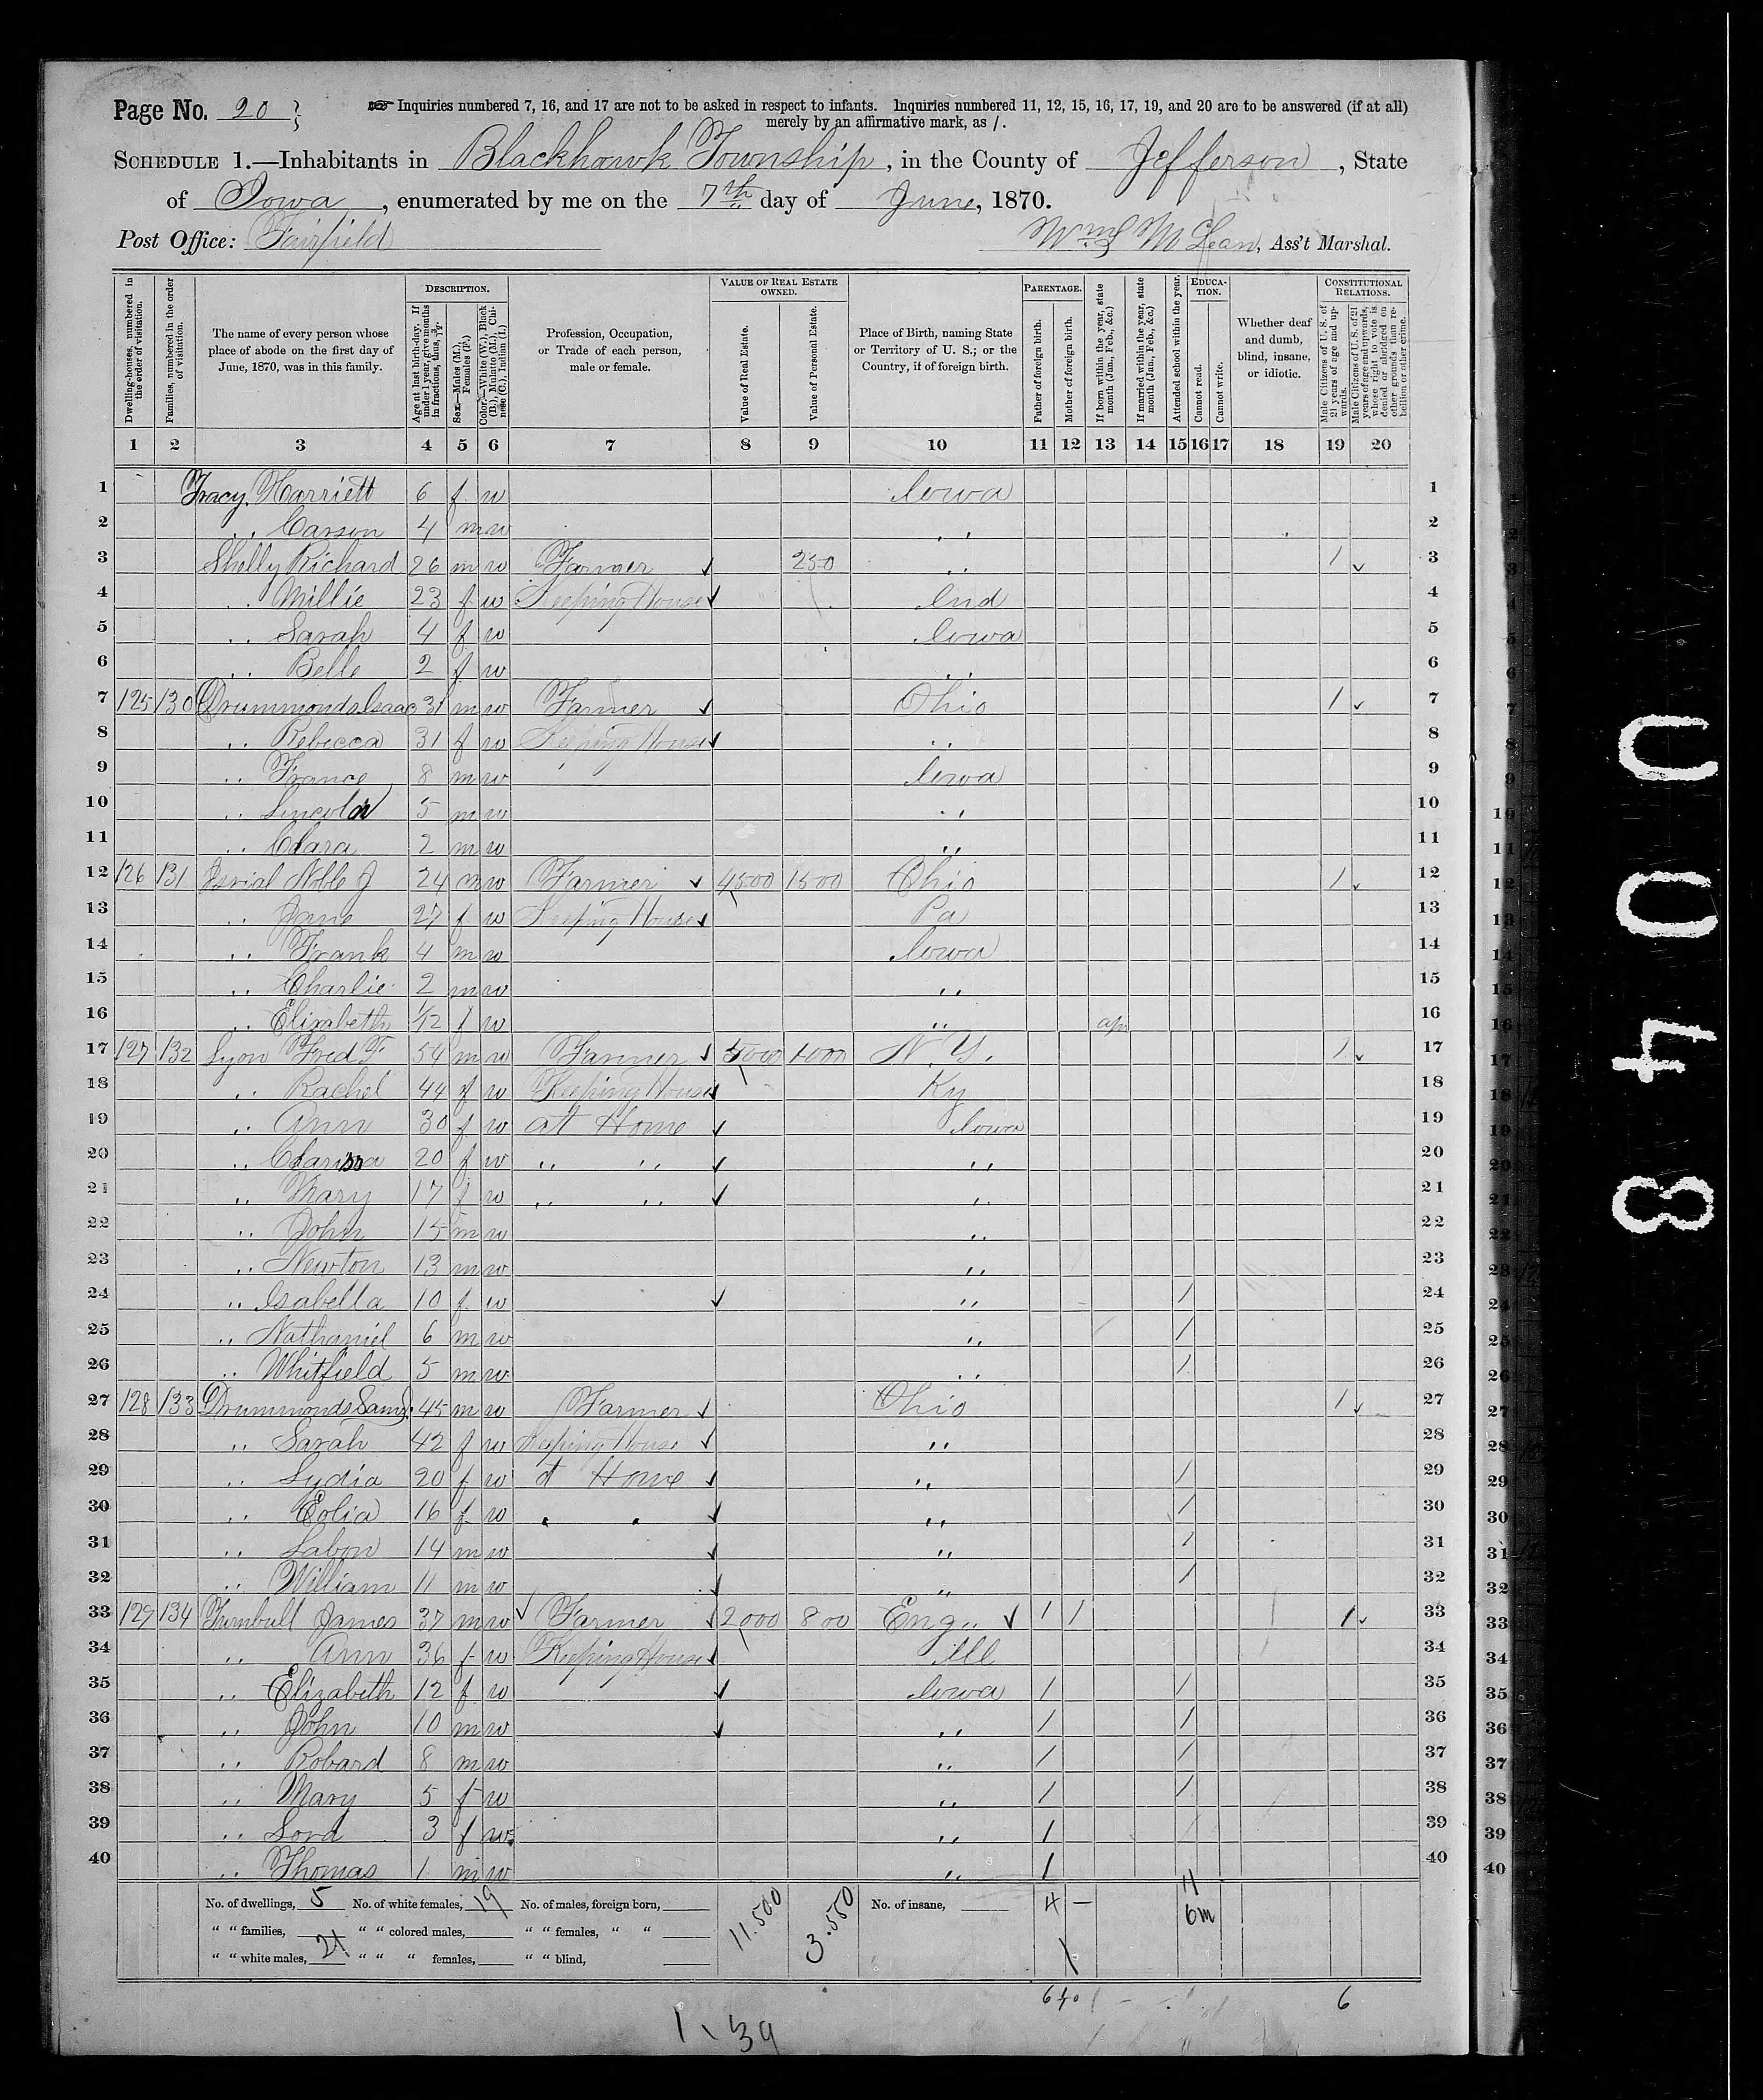 Page No. 20
Inquiries numbered 7, 16, and 17 are not to be asked in respect to infants. Inquiries numbered 11, 12, 15, 16, 17, 19, and 20 are to be answered (if at all)
merely by an affirmative mark, as /.
SCHEDULE 1.—Inhabitants in Blackhowk Township, in the County of Jefferson, State
of Iowa, enumerated by me on the 7th day of June, 1870.
Post Office: Fairfield Wm S McLean, Ass't Marshal.
Dwelling-houses, numbered in the order of visitation.
Families, numbered in the order of visitation.
The name of every person whose place of abode on the first day of June, 1870, was in this family.
DESCRIPTION.
Age at last birth-day. If under 1 year, give months in fractions, thus, 3/12.
Sex.—Males (M.), Females (F.)
Color.—White (W.), Black (B.), Mulatto (M.), Chinese (C.), Indian (I.)
Profession, Occupation, or Trade of each person, male or female.
VALUE OF REAL ESTATE OWNED.
Value of Real Estate.
Value of Personal Estate.
Place of Birth, naming State or Territory of U. S.; or the Country, if of foreign birth.
PARENTAGE.
Father of foreign birth.
Mother of foreign birth.
If born within the year, state month (Jan., Feb., &c.)
If married within the year, state month (Jan., Feb., &c.)
Attended school within the year.
EDUCATION.
Cannot read.
Cannot write.
Whether deaf and dumb, blind, insane, or idiotic.
CONSTITUTIONAL RELATIONS.
Male Citizens of U. S. of 21 years of age and upwards.
Male Citizens of U. S. of 21 years of age and upwards, whose right to vote is denied or abridged on other grounds than rebellion or other crime.
1 2 3 4 5 6 7 8 9 10 11 12 13 14 15 16 17 18 19 20
1 Tracy Harriett 6 f w Iowa 1
2 " Carson 4 m w " 2
3 Shelly Richard 26 m w Farmer 250 " / 3
4 " Millie 23 f w Keeping House Ind 4
5 " Sarah 4 f w Iowa 5
6 " Belle 2 f w " 6
7 125 130 Drummonds Isaac 31 m w Farmer Ohio / 7
8 " Rebecca 31 f w Keeping House " 8
9 " France 8 m w Iowa 9
10 " Lincoln 5 m w " 10
11 " Clara 2 m w " 11
12 126 131 Noble J 24 m w Farmer 4500 1500 Ohio / 12
13 " Jane 27 f w Keeping House Pa 13
14 " Frank 4 m w Iowa 14
15 " Charlie 2 m w " 15
16 " Elizabeth 1/12 f w " apr 16
17 127 132 Lyon Fred F 54 m w Farmer 5000 1000 N.Y. / 17
18 " Rachel 44 f w Keeping House Ky 18
19 " Ann 30 f w at Home Iowa 19
20 " Clarissa 20 f w " " " 20
21 " Mary 17 f w " " " 21
22 " John 15 m w " 22
23 " Newton 13 m w " 23
24 " Isabella 10 f w " / 24
25 " Nathaniel 6 m w " / 25
26 " Whitfield 5 m w " / 26
27 128 133 Drummonds Saml. 45 m w Farmer Ohio / 27
28 " Sarah 42 f w Keeping House " 28
29 " Lydia 20 f w at Home " / 29
30 " Eolia 16 f w " " " / 30
31 " Labon 14 m w " / 31
32 " William 11 m w " / 32
33 129 134 Turnbull James 37 m w Farmer 2000 800 Eng. / / / 33
34 " Ann 36 f w Keeping House Ill 34
35 " Elizabeth 12 f w Iowa / / 35
36 " John 10 m w " / / 36
37 " Robard 8 m w " / / 37
38 " Mary 5 f w " / / 38
39 " 3 f w " / 39
40 " Thomas 1 m w " / 40
No. of dwellings, 5 No. of white females, 19 No. of males, foreign born, 11.500 3.550 No. of insane, 4 — 11
" " families, " " colored males, " " females, " " 6m
" " white males, 21 " " " females, " " blind,
640 6
1 39
00408